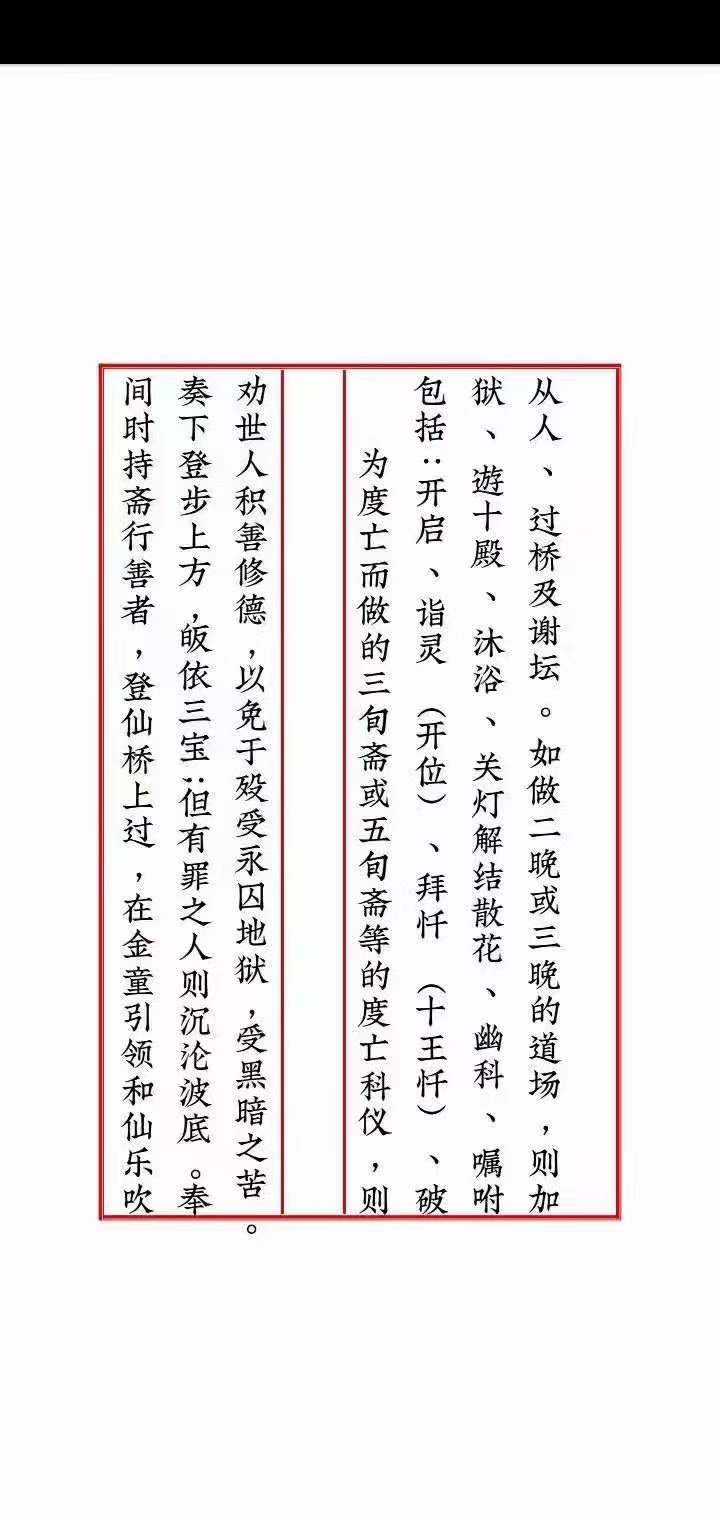 间时持斋行善者，登仙桥上过，在金童引领和仙乐吹
奏下登步上方，皈依三宝；但有罪之人则沉沦波底。奉
劝世人积善修德，以免于殁受永囚地狱，受黑暗之苦。
为度亡而做的三旬斋或五旬斋等的度亡科仪，则
包括：开启、诣灵（开位）、拜忏（十王忏）、破
狱、遊十殿、沐浴、关灯解结散花、幽科、嘱咐
从人、过桥及谢坛。如做二晚或三晚的道场，则加